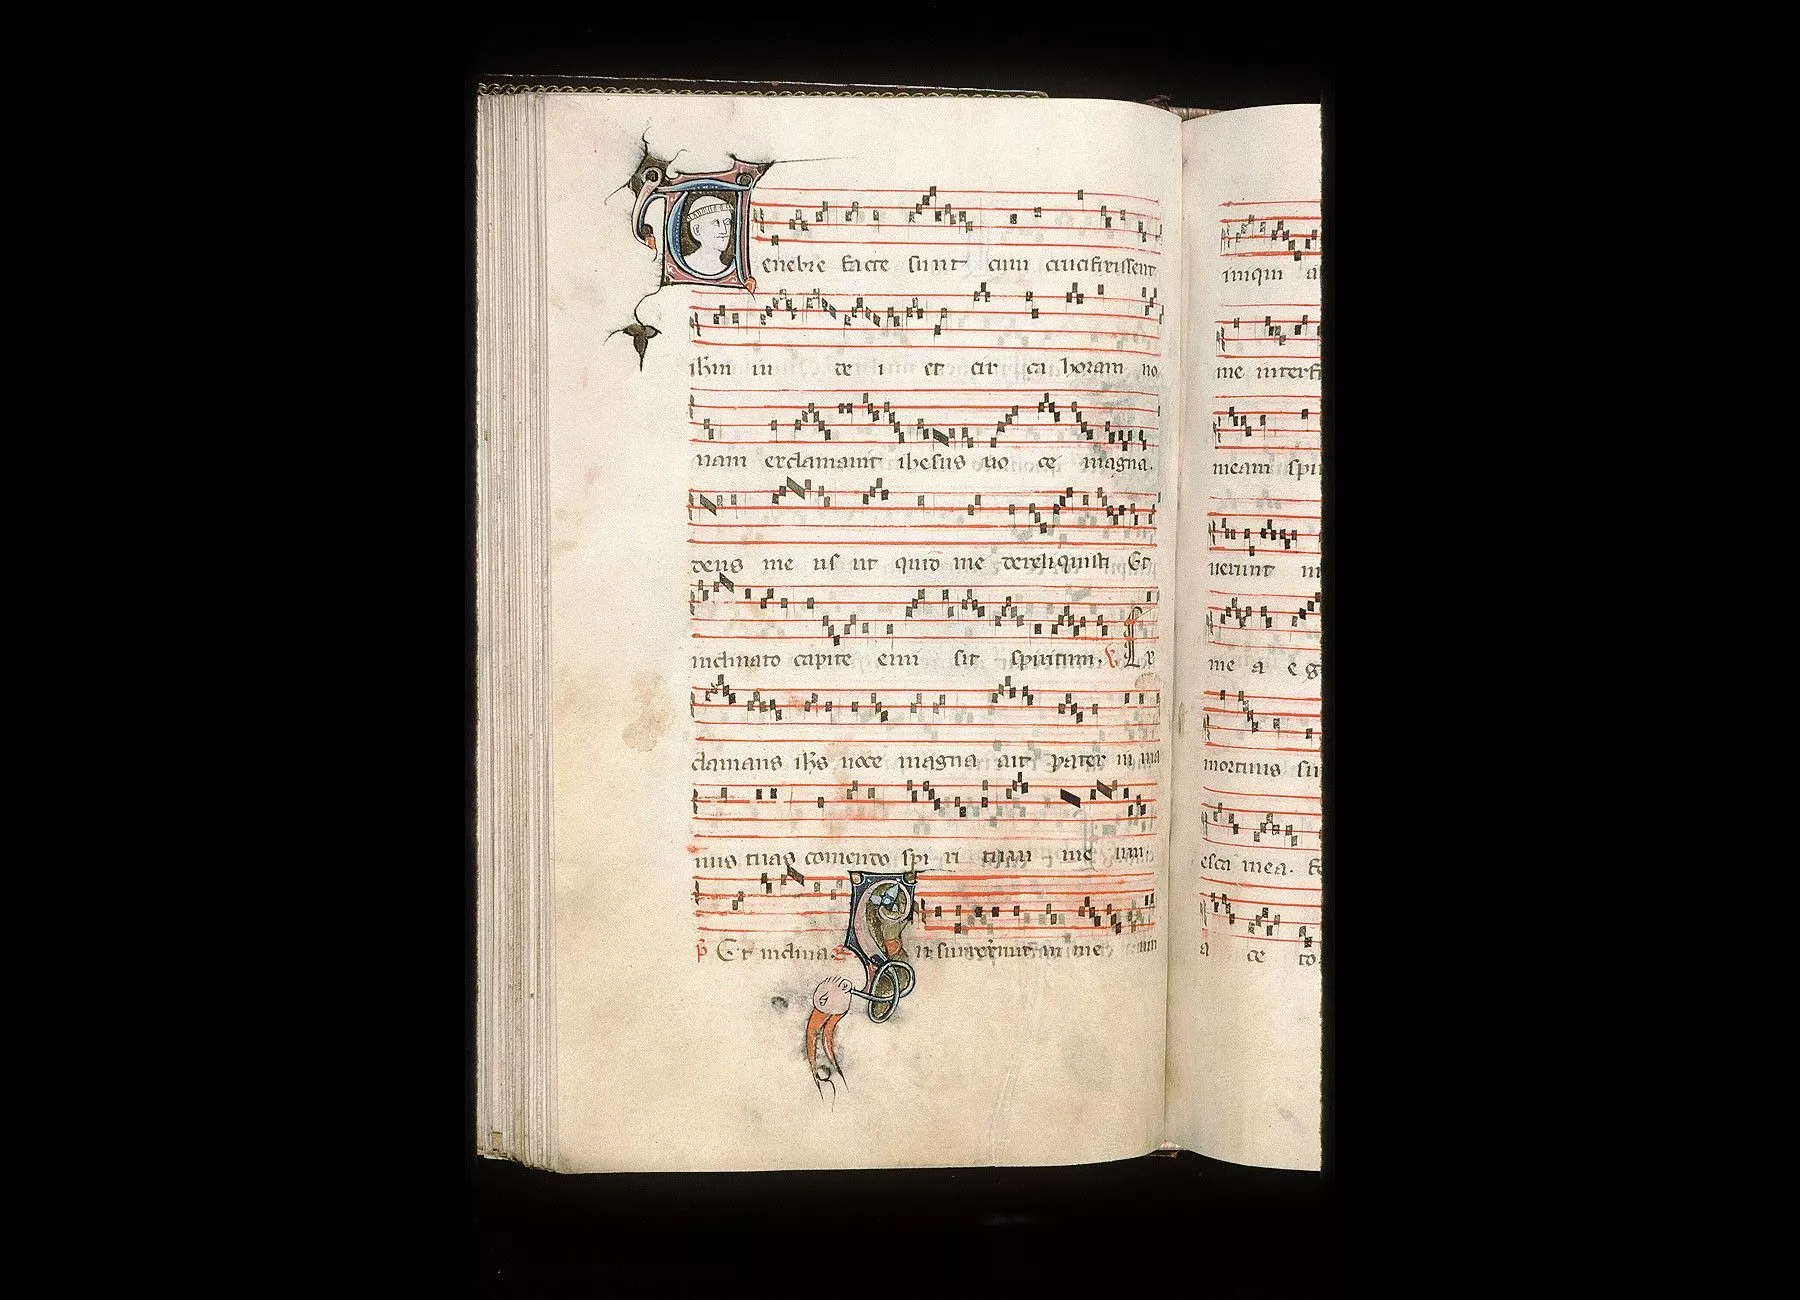 Tenebre facte sunt cum crucifixissent
ihm iu de i et cir ca horam no
nam exclamauit ihesus uo ce magna.
deus me us ut quid me dereliquisti Et
inclinato capite emi sit spiritum. V Ex
clamans ihs uoce magna ait pater in ma
nus tuas comendo spi ri tum me um.
P Et inclina. in me
iniqui a
me interfe
meam spi
uerunt in
me a e g
mortuus su
esca mea.
a ce to.